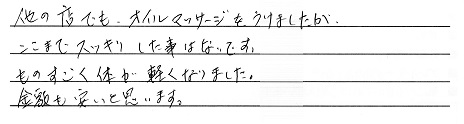 他の店でも、オイルマッサージをうけましたが、
ここまでスッキリした事はないです。
ものすごく体が軽くなりました。
金額も安いと思います。